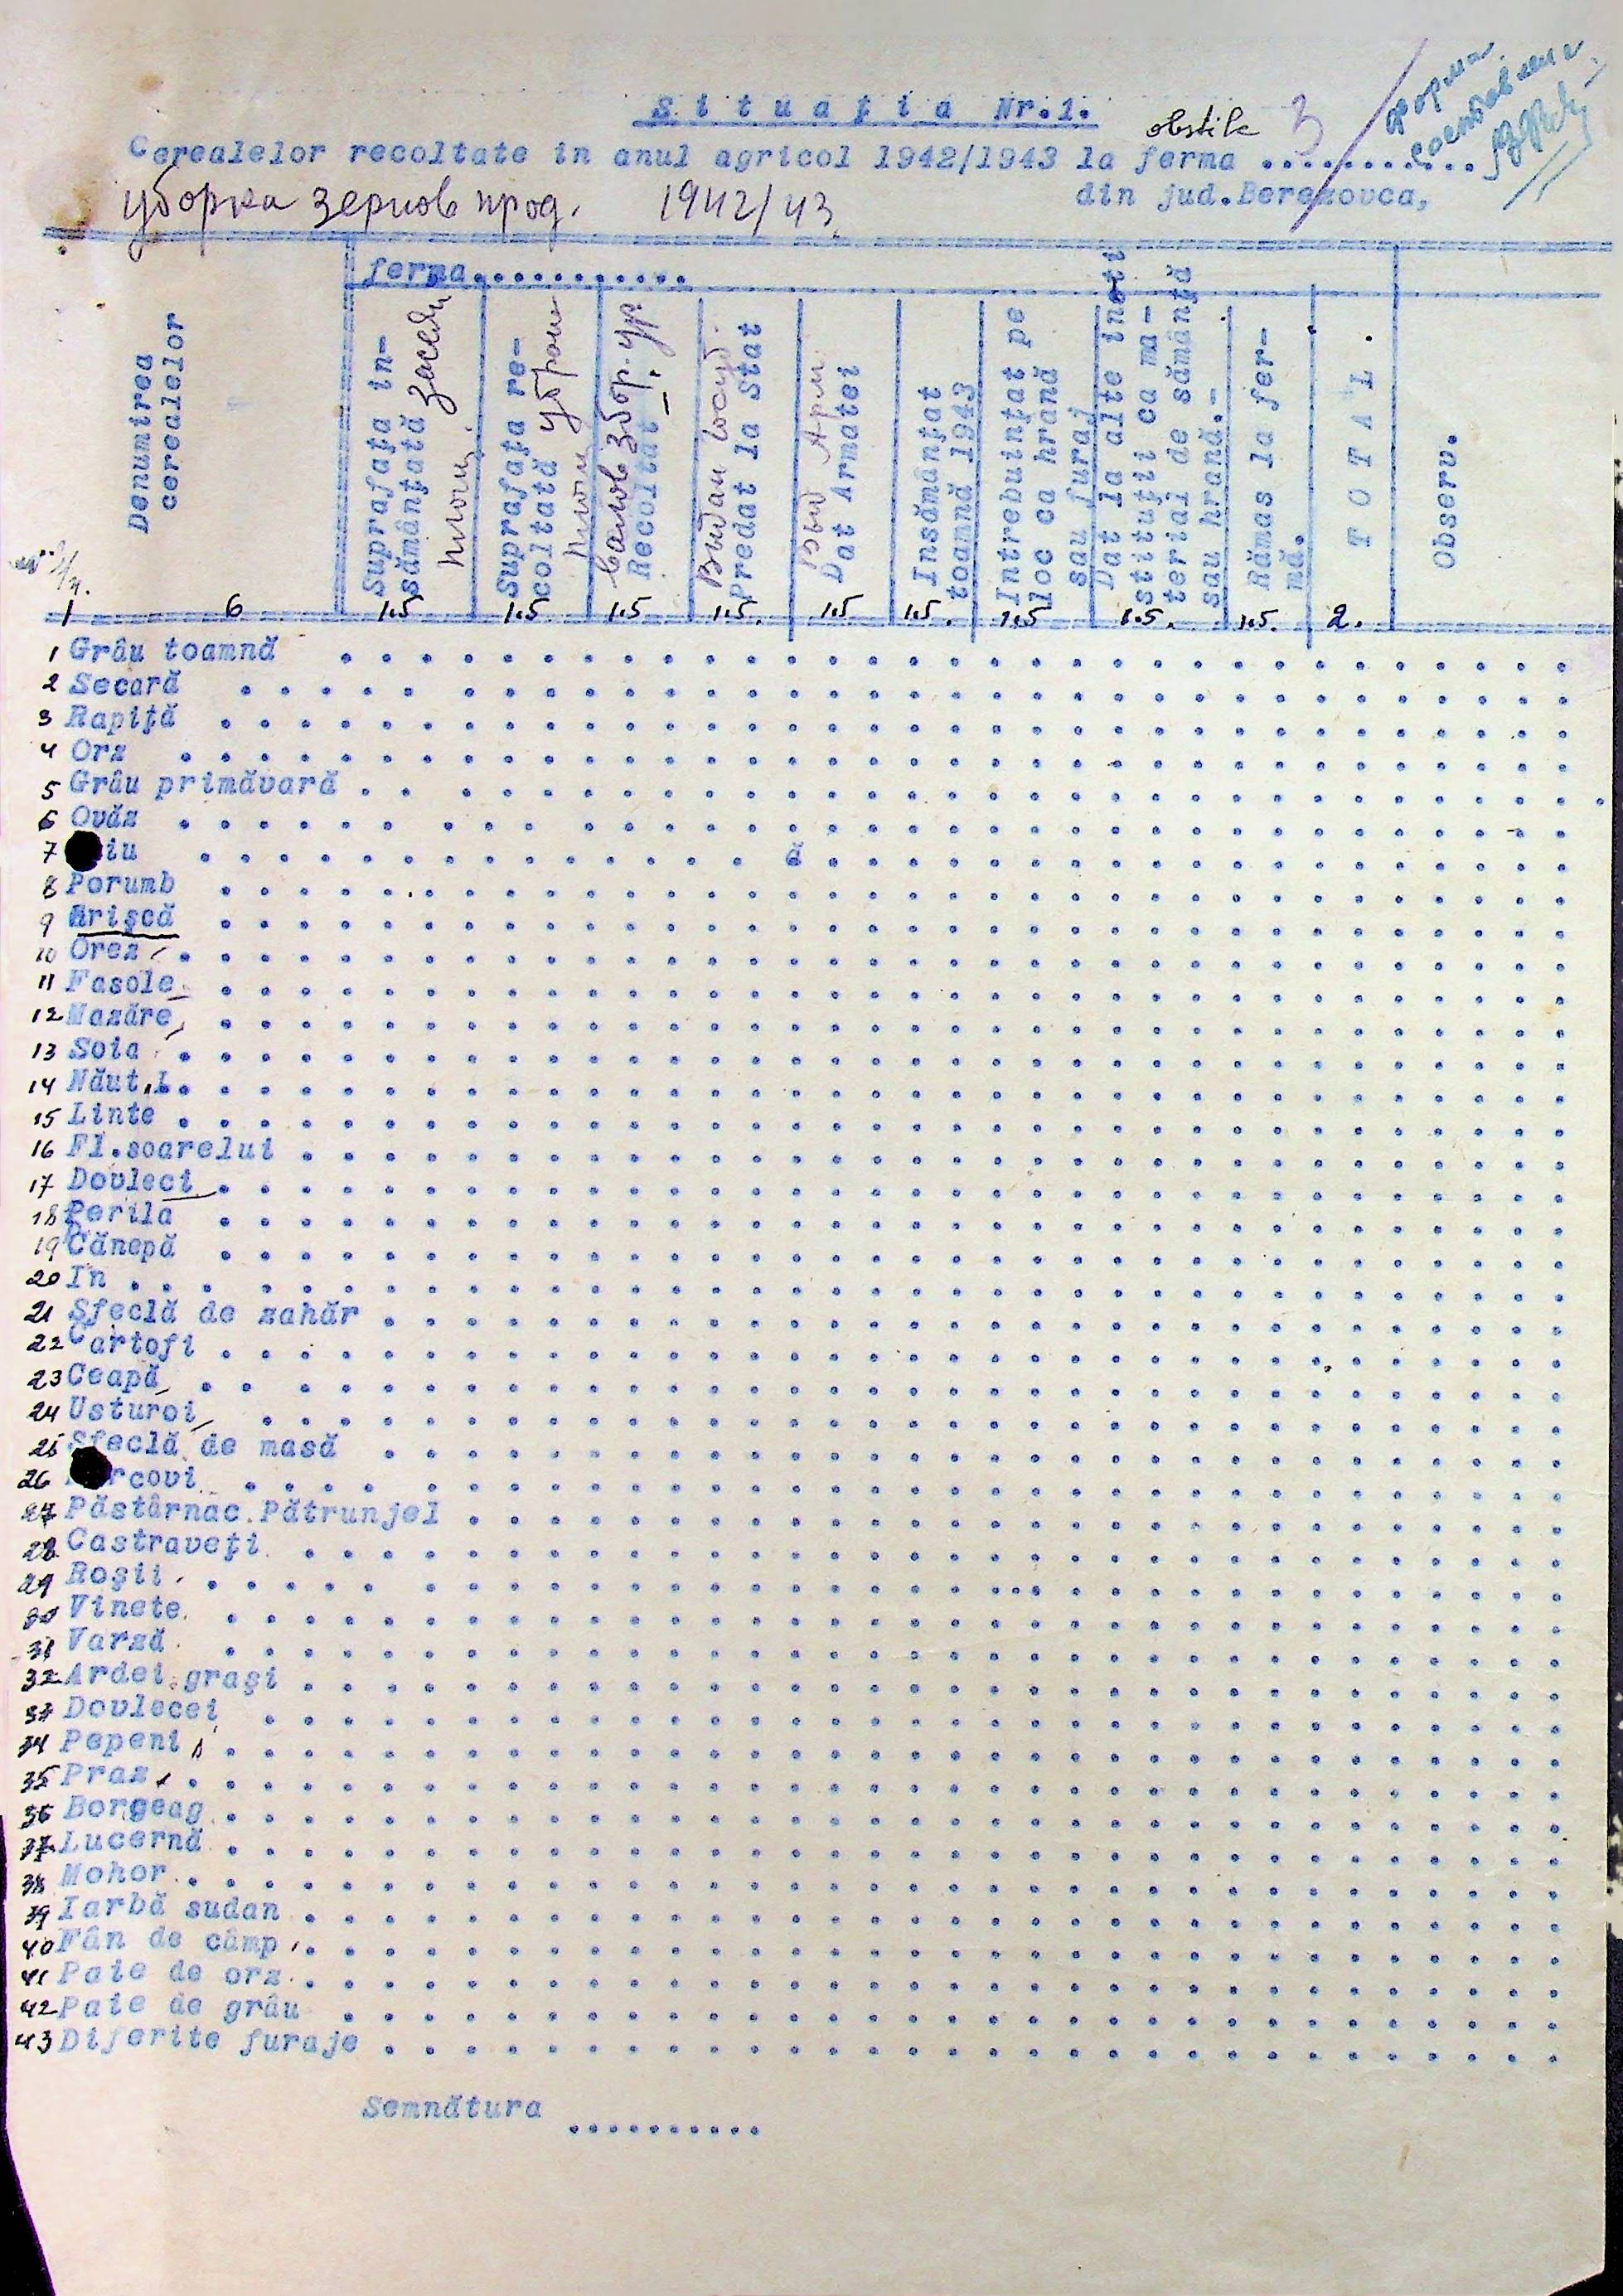 Situaţia Nr.1.
obstile 3
Cerealelor recoltate in anul agricol 1942/1943 la ferma ............
din jud.Berezovca,
уборка зернов прод. 1942/43
форма
ferma...........
Denumirea
cerealelor
Suprafaţa in-
sămânţată
Suprafaţa re-
coltată
Recoltat
Predat la Stat
Выд Арм
Dat Armatei
Insămânţat
toamnă 1943
Intrebuinţat pe
loc ca hrană
sau furaj
Dat la alte insti
stituţii ca ma-
terial de sămânţă
sau hrană.-
Rămas la fer-
mă.
TOTAL.
Observ.
1 6 1.5 1.5 1.5 1.5. 1.5 1.5. 1.5 1.5. 1.5. 2.
1 Grâu toamnă
2 Secară
3 Rapiţă
4 Orz
5 Grâu primăvară
6 Ovăz
7 iu
8 Porumb
9 Hrişcă
10 Orez
11 Fasole
12 Mazăre
13 Soia
14 Năut
15 Linte
16 Fl.soarelui
17 Dovleci
18 Perila
19 Cănepă
20 In
21 Sfeclă de zahăr
22 Cartofi
23 Ceapă
24 Usturoi
25 Sfeclă de masă
26 rcovi
27 Păstârnac.Pătrunjel
28 Castraveţi
29 Roşii
30 Vinete
31 Varză
32 Ardei graşi
33 Dovlecei
34 Pepeni
35 Praz
36 Borgeag
37 Lucernă
38 Mohor
39 Iarbă sudan
40 Fân de câmp
41 Paie de orz
42 Paie de grâu
43 Diferite furaje
Semnătura ..........